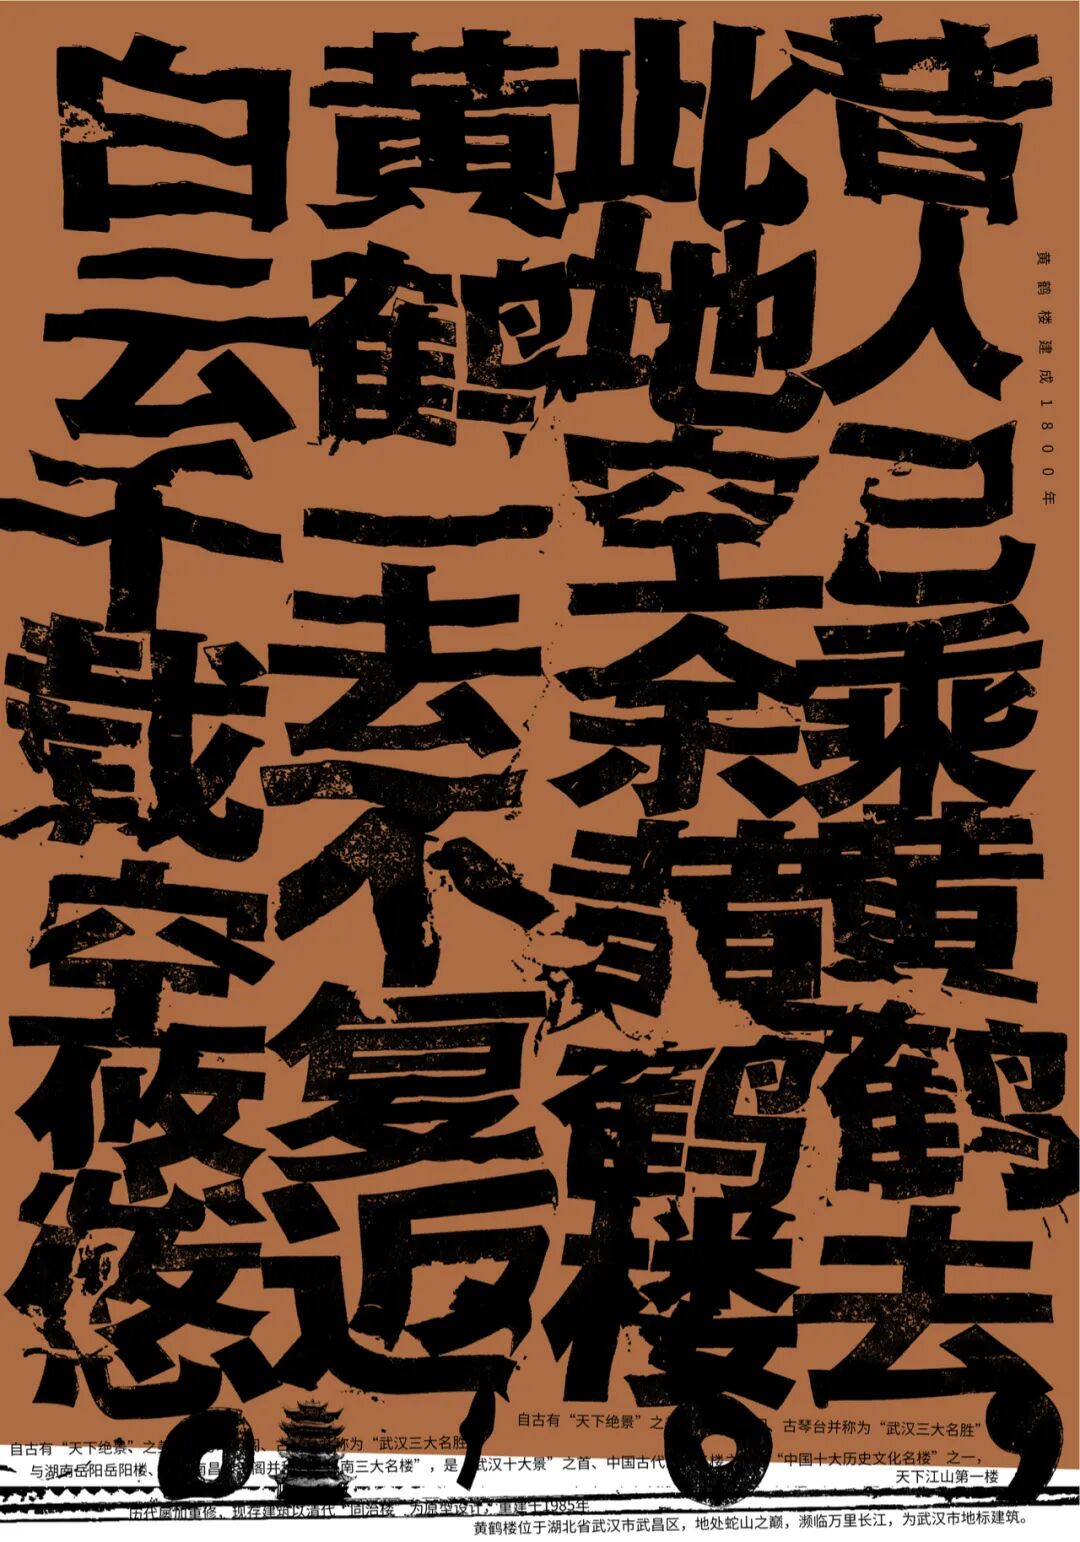 昔人已乘黄鹤去，
此地空余黄鹤楼。
黄鹤一去不复返，
白云千载空悠悠。
黄鹤楼建成1800年
自古有“天下绝景”之 古琴台并称为“武汉三大名胜”
自古有“天下绝景”之 称为“武汉三大名胜
与湖南岳阳岳阳楼、 南昌 阁并 南三大名楼”，是 武汉十大景”之首、中国古代 “中国十大历史文化名楼”之一，
天下江山第一楼
历代屡加重修，现存建筑以清代“同治楼”为原型设计，重建于1985年
黄鹤楼位于湖北省武汉市武昌区，地处蛇山之巅，濒临万里长江，为武汉市地标建筑。